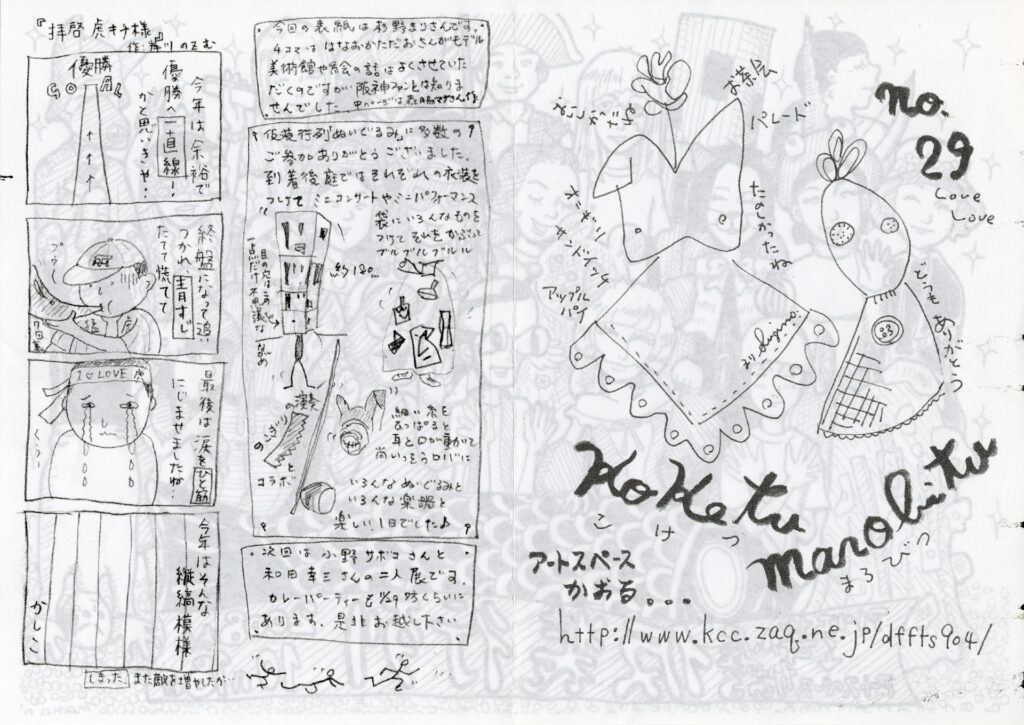 『拝啓 虎キチ様』
今年は余裕で
優勝へ一直線!
かと思いきや・
優勝
GOAL
終盤になって追い
つかれ、青すじ
たてて慌てて
猛虎
I ♡ LOVE 虎
最後は涙をひと筋
にじませましたね・
今年はそんな
縦縞模様
かしこ
しまった、また敵を増やしたが…
今回の表紙は杉野まりさんです。
4コマは はなおかただおさんがモデル
美術館や絵の話はよくさせていた
だくのですが阪神ファンとは知りま
せんでした。
仮装行列「ぬいぐるみ」に多数の
ご参加ありがとうございました。
到着後庭ではそれぞれの衣装を
つけて ミニコンサートやミニパフォーマンス
袋にいろんなものを
つけて それをかぶって
ブルブルブルル
約180cm
のこぎりの演奏
とコラボだ
細い糸を
ひっぱると
耳と口が動かせて
尚いっそうロバに
いろんなぬいぐるみと
いろんな楽器と
楽しい1日でした♪
次回は 小野サボコさんと
和田幸三さんの二人展です。
カレーパーティーも1/29 夕方くらいに
あります、是非お越し下さい
no.
29
Love
Love
お茶会
パレード
たのしかったね
オニギリ
サンドイッチ
アップル
パイ
まり Sugino.
どうも ありがとう
KoKetu
こけつ
marobitu
まろびつ
アートスペース
かおる。。。
http://www.kcc.zaq.ne.jp/dffts904/